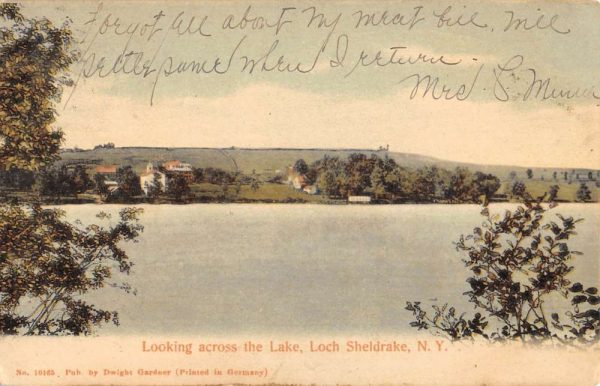 Forgot All about My meat bill, will
settle same when I return.
Mrs. S.
Looking across the Lake, Loch Sheldrake, N. Y.
No. 10165 Pub. by Dwight Gardner (Printed in Germany)